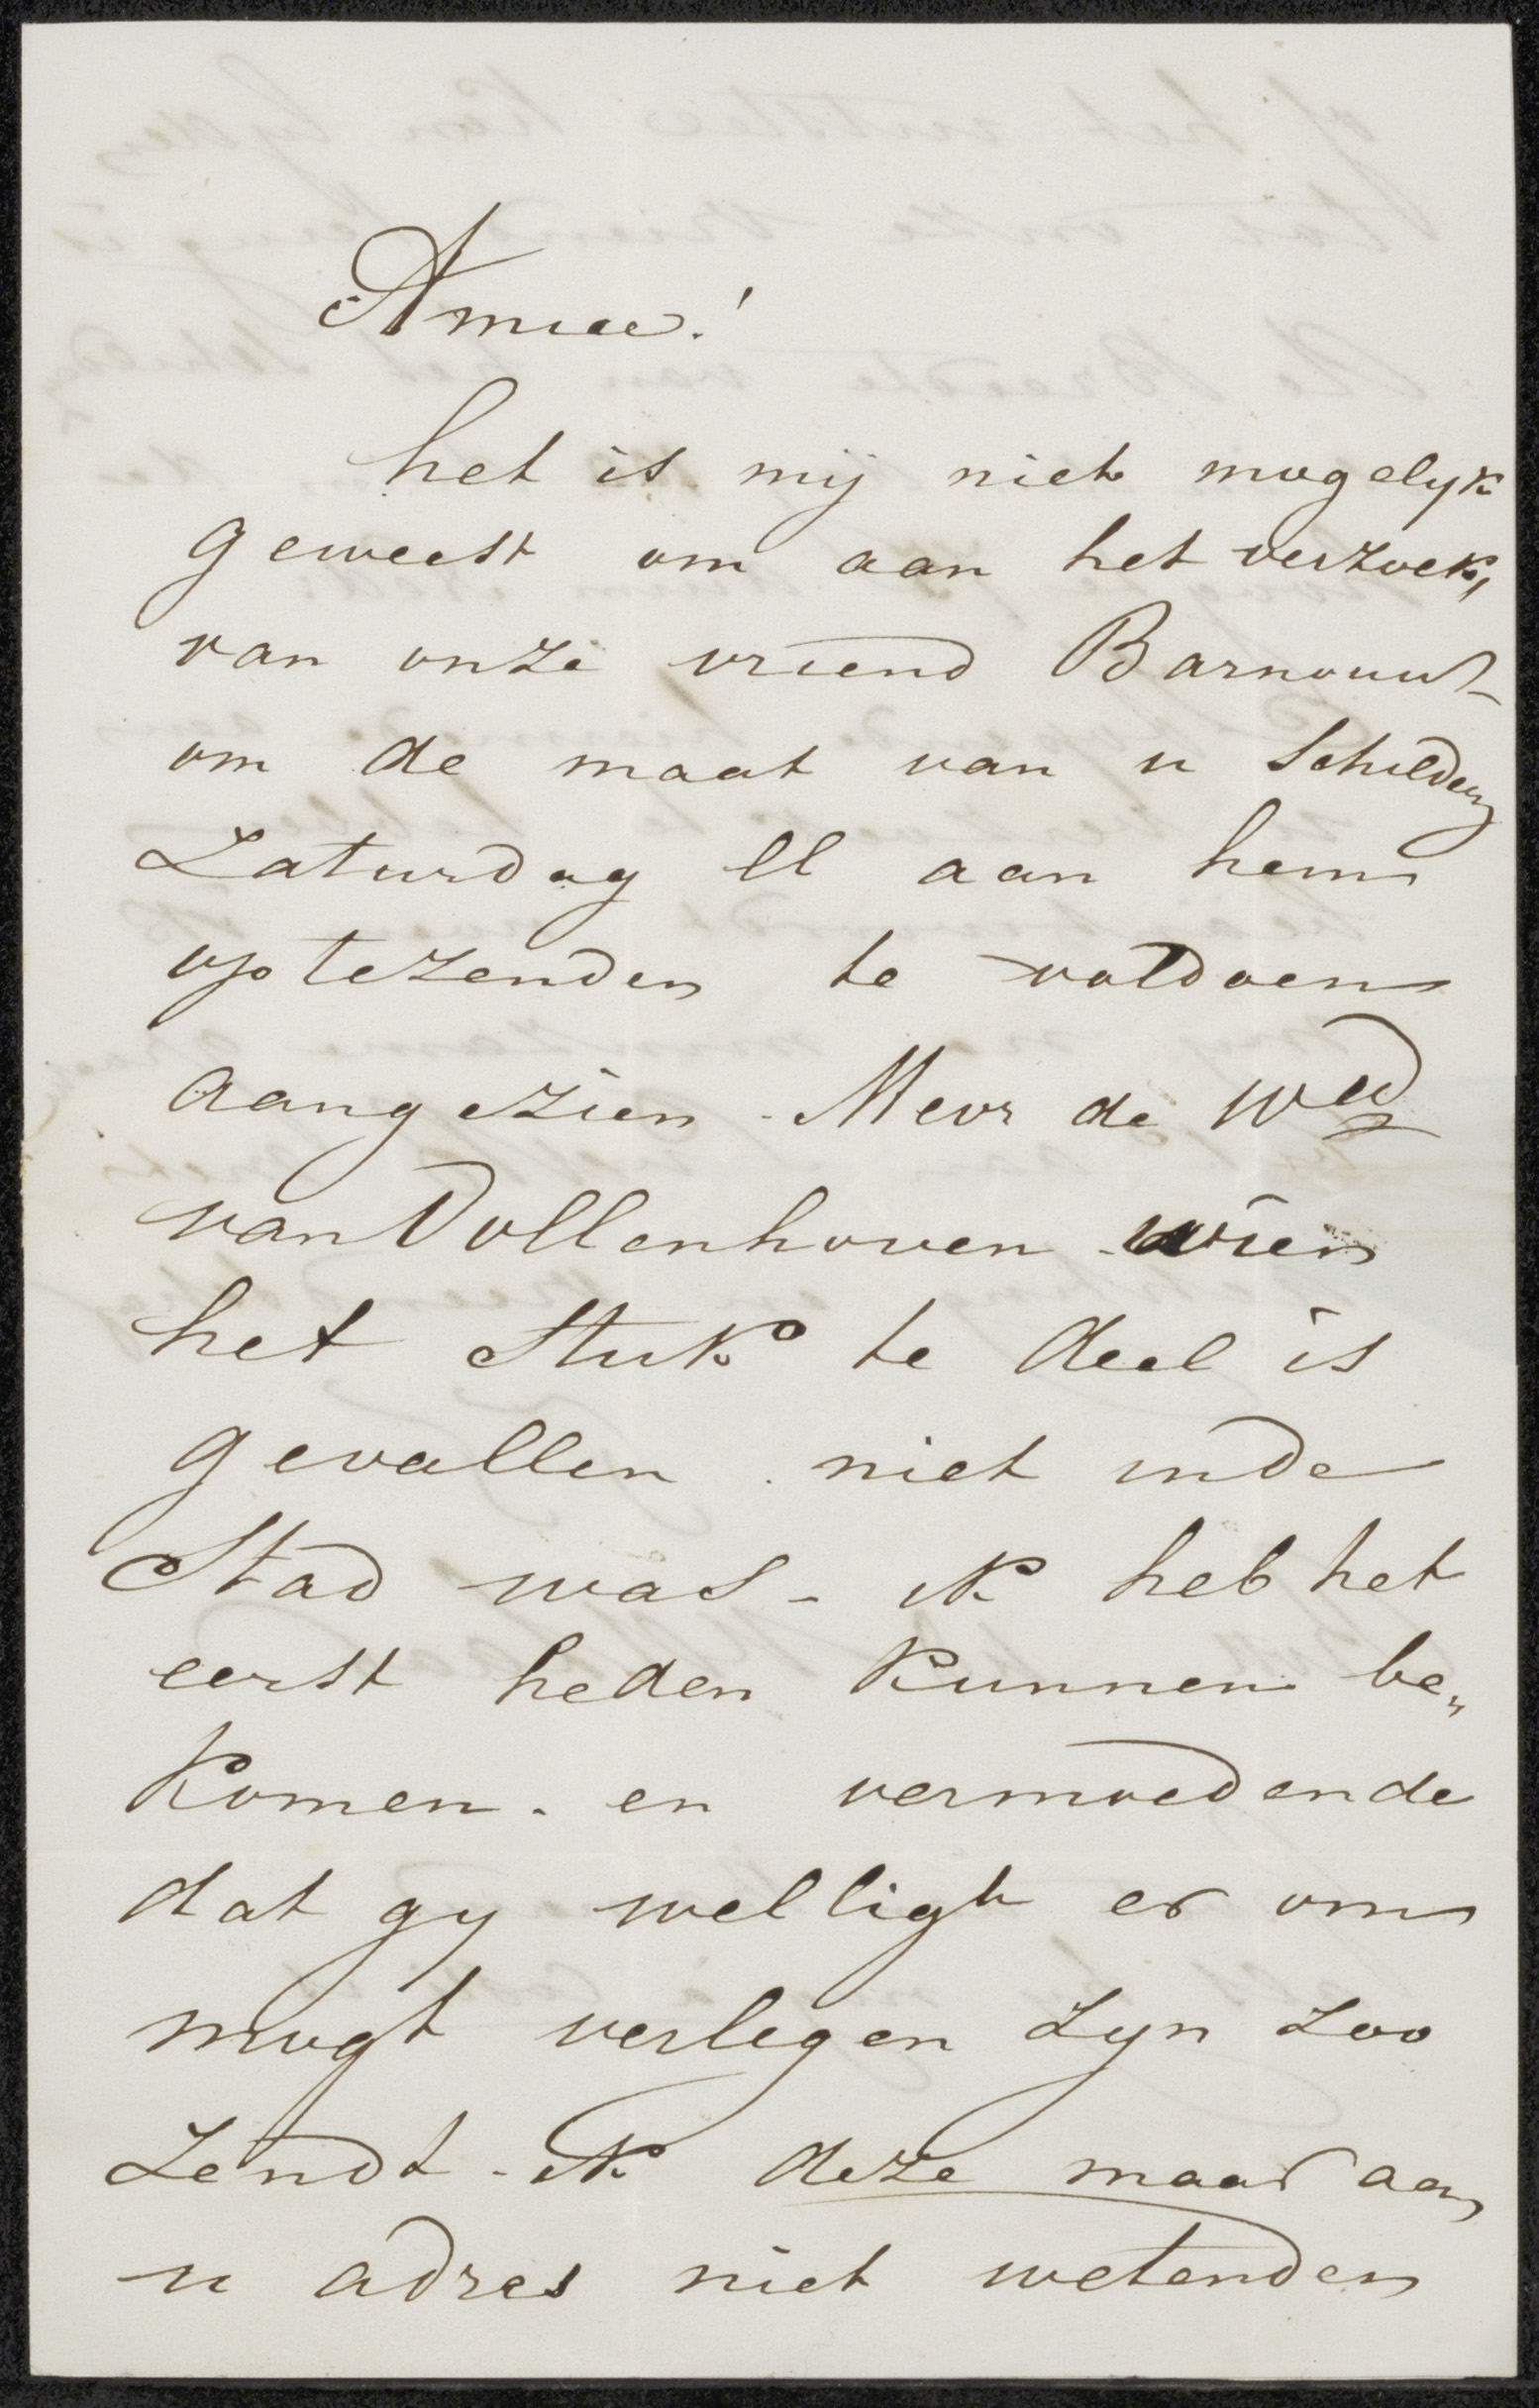 Amice!
het is mij niet mogelyk
geweest om aan het verzoek,
van onze vriend Barnouw
om de maat van u Schildery
Zaturdag ll aan hem
optezenden te voldoen
aangezien - Mevr de Wed
van Vollenhoven wien
het Stuk te deel is
gevallen niet inde
Stad was - ik heb het
eerst heden kunnen be„
komen. en vermoedende
dat gy welligt er om
mogt verlegen zyn zoo
zendt - ik deze maar aan
u adres niet wetenden